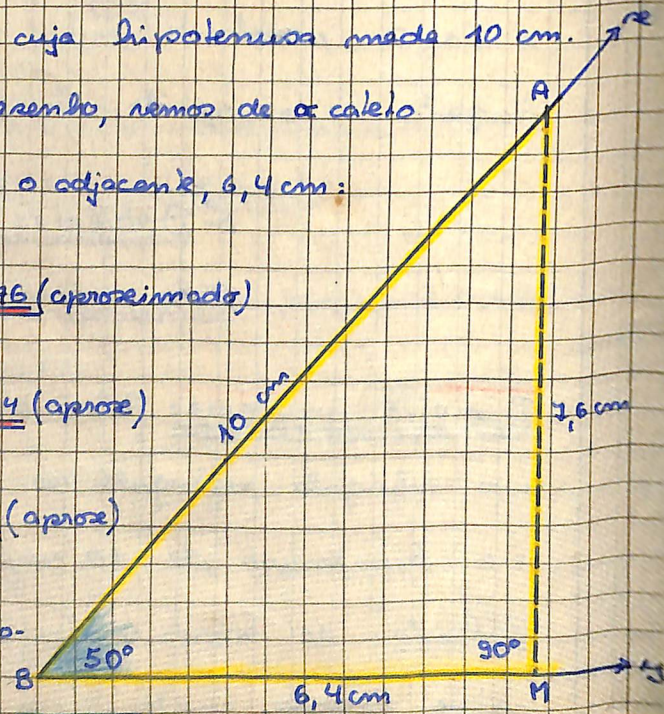 cuja hipotenusa mede 10 cm.
x
A
senho, vemos de o cateto
o adjacente, 6,4 cm:
76 (aproximado)
4 (aprox)
10 cm
7,6 cm
(aprox)
o-
50°
90°
B
6,4 cm
M
y